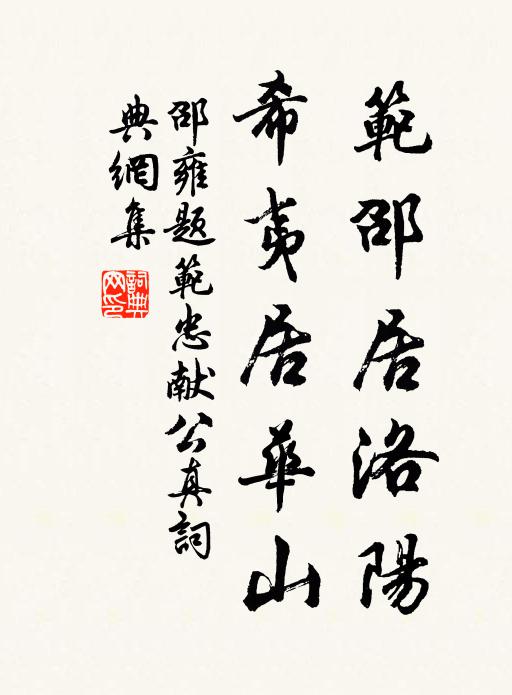 範邵居洛陽
希夷居華山
邵雍題範忠献公真詞
典網集
詞典网印